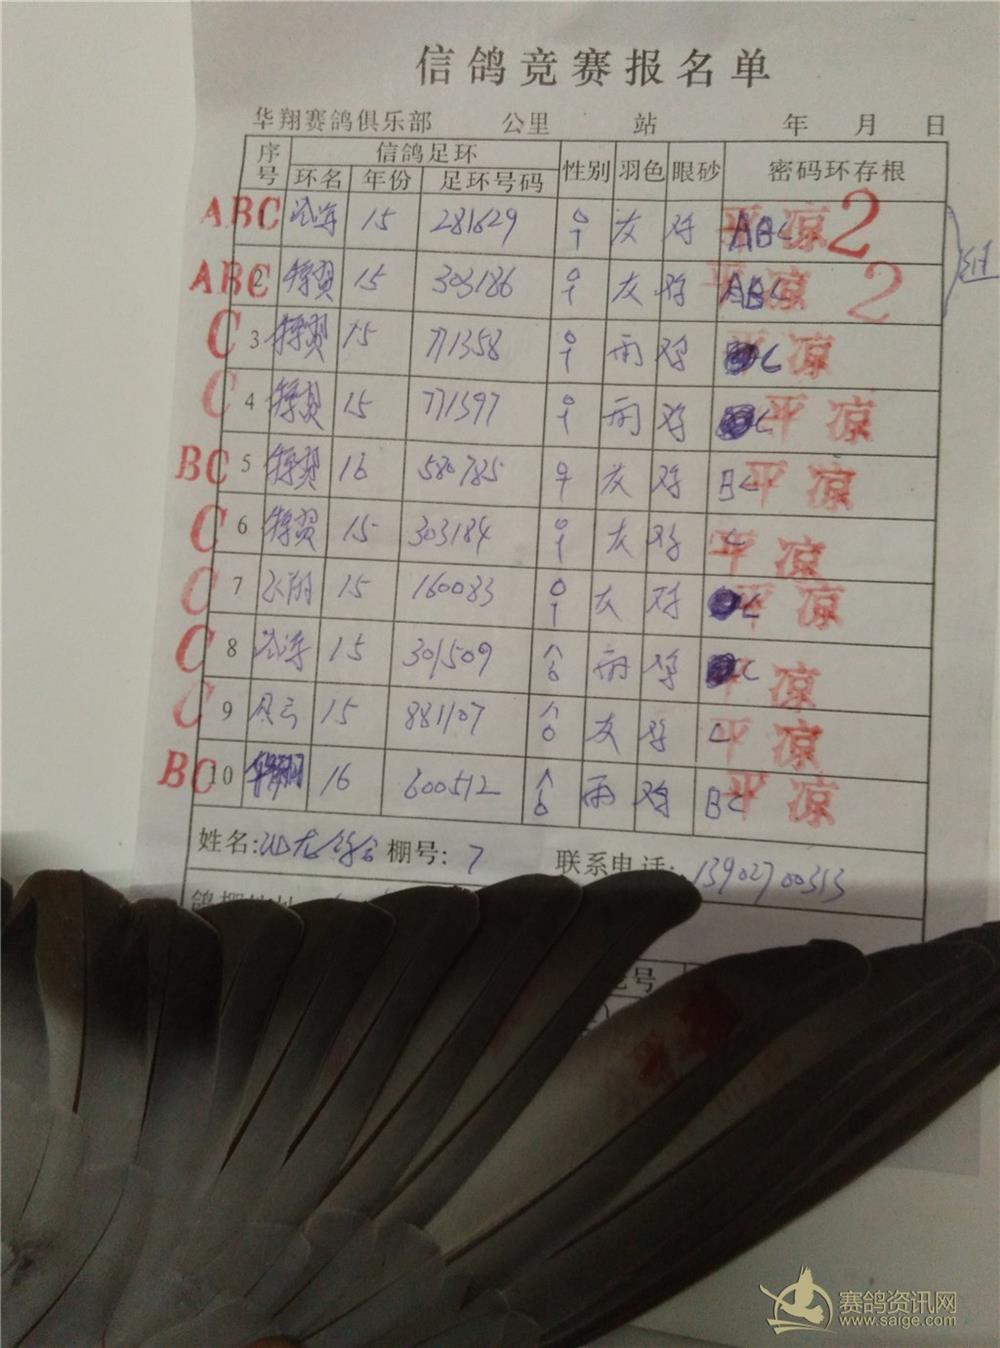 信鸽竞赛报名单
华翔赛鸽俱乐部 公里 站 年 月 日
序号 信鸽足环 性别 羽色 眼砂 密码环存根
环名 年份 足环号码
ABC 15 281629 ♀ 灰 ABC 平凉 2
ABC 2 15 303186 ♀ 灰 ABC 平凉 2
组
C 3 15 771358 ♀ 雨 C 平凉
C 4 15 771597 ♀ 雨 C 平凉
BC 5 16 580785 ♀ 灰 BC 平凉
C 6 15 303184 ♀ 灰 C 平凉
C 7 15 160083 ♀ 灰 C 平凉
C 8 15 301509 雨 C 平凉
C 9 风云 15 881107 灰 C 平凉
BC 10 华翔 16 600512 雨 BC 平凉
姓名: 棚号: 7 联系电话: 13902700313
鸽棚地址
号
赛鸽资讯网
www.saige.com